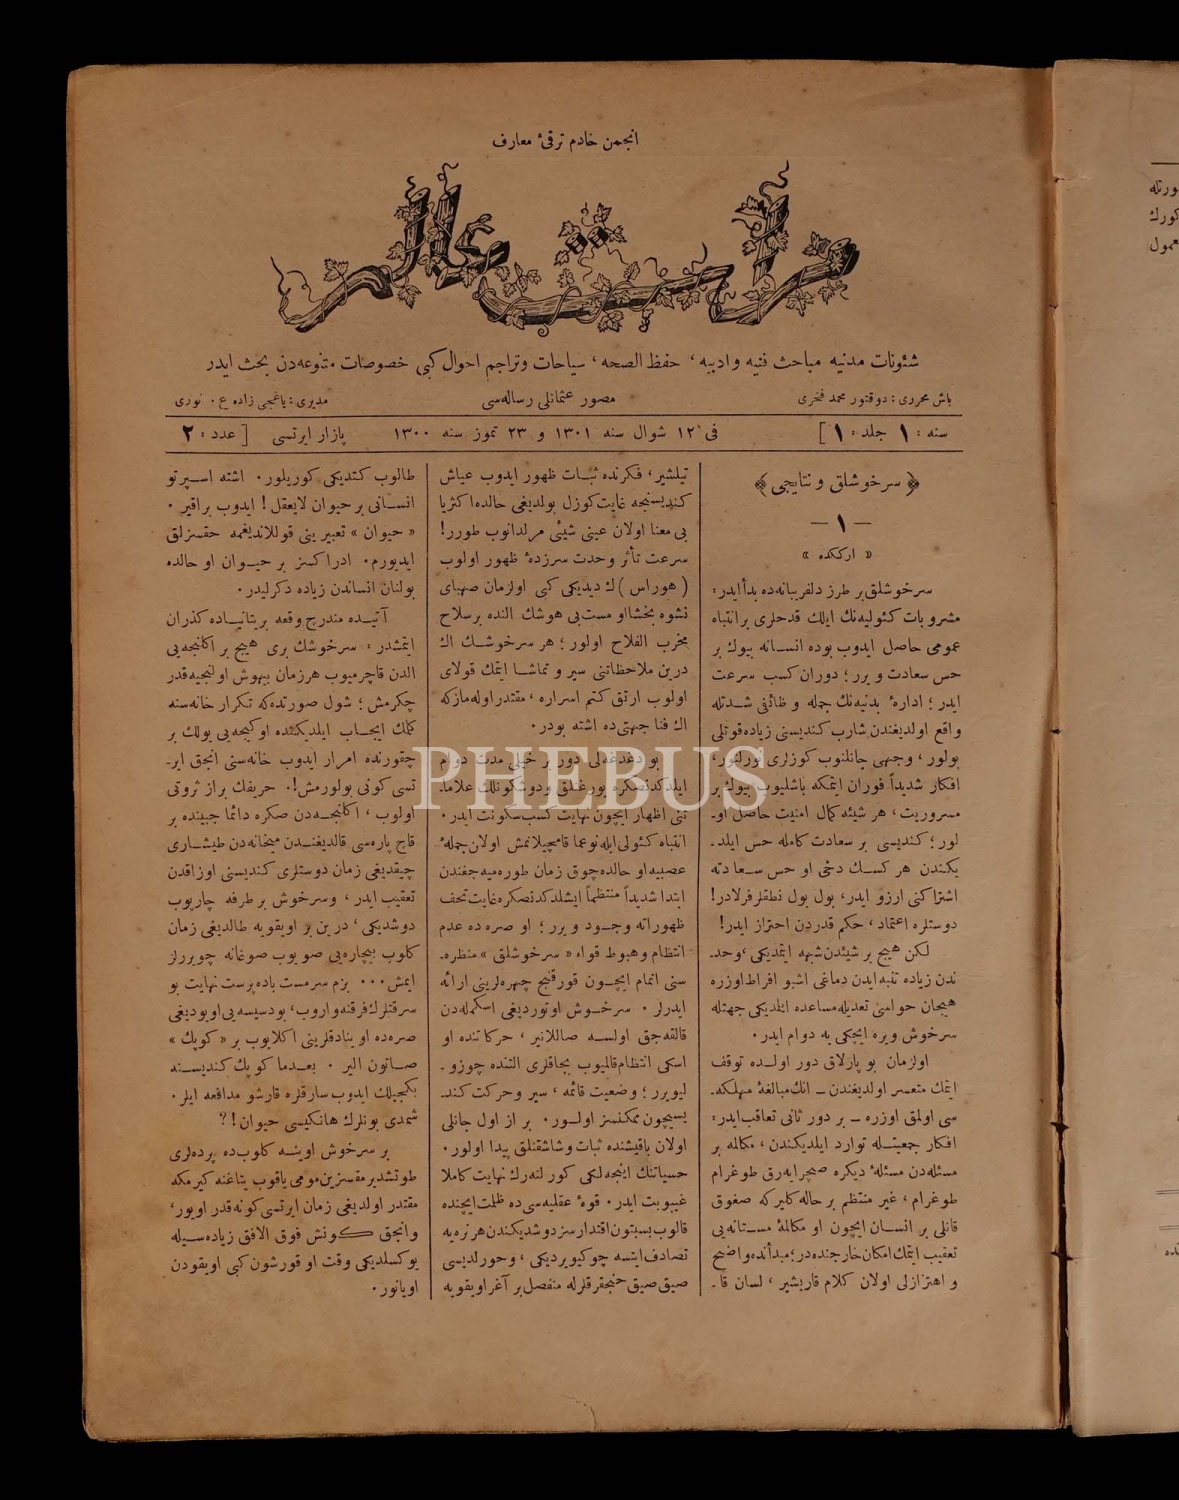 انجمن خادم ترقیٔ معارف
مرآت عالم
شئونات مدنیه مباحث فنیه و ادبیه ، حفظ الصحه ، سیاحات و تراجم احوال کبی خصوصات متنوعه‌دن بحث ایدر
باش محرری : دوقتور محمد فخری
مصور عثمانلی رساله‌سی
مدیری : یاغجی زاده ع . نوری
سنه : ١ جلد : ١ ]
فی ١٢ شوال سنه ١٣٠١ و ٢٣ تموز سنه ١٣٠٠
پازار ایرتسی
[ عدد : ٢
﴿ سرخوشلق و نتایجی ﴾
— ١ —
« ارککده »
سرخوشلق بر طرز دلفریبانه‌ده بدأ ایدر :
مشروبات کئولیه‌نك ایلك قدحلری بر انتباه
عمومی حاصل ایدوب بوده انسانه بیوك بر
حس سعادت و یرر ؛ دوران کسب سرعت
ایدر ؛ ادارهٔ بدنیه‌نك جمله و ظائفی شدتله
واقع اولدیغندن شارب کندیسنی زیاده قوتلی
بولور ، وجهی جانلنوب کوزلری نورلنور ،
افکار شدیداً فوران ایتمکه باشلیوب بیوك بر
مسروریت ، هر شیئه کمال امنیت حاصل او-
لور ؛ کندیسی بر سعادت کامله حس ایلد-
یکندن هر کسك دخی او حس سعادته
اشتراکنی ارزو ایدر ، بول بول نطقلر فرلادر !
دوستلره اعتماد ، حکم قدردن احتراز ایدر !
لکن هیچ بر شیئدن شبهه ایتمدیکی ، وحد-
تدن زیاده تنبه ایدن دماغی اشبو افراط اوزره
هیجان حواسنی تعدیله مساعده ایتمدیکی جهتله
سرخوش ویره ایچکی یه دوام ایدر .
اولزمان بو پارلاق دور اولده توقف
ایتمك متعسر اولدیغندن – انك مبالغهٔ مهلکه-
سی اولمق اوزره – بر دور ثانی تعاقب ایدر :
افکار جمعیتله توارد ایلدیکندن ، مکالمه بر
مسئله‌دن مسئلهٔ دیکره صچرایه‌رق طوغرام
طوغرام ، غیر منتظم بر حاله کلیر که صغوق
قانلی بر انسان ایچون او مکالمهٔ مستانه‌یی
تعقیب ایتمك امکان خارجنده‌در ؛ مبدأنده واضح
و اهتزازلی اولان کلام قاریشیر ، لسان قا-
تیلشیر ، فکرنده ثبات ظهور ایدوب عیاش
کندیسنجه غایت کوزل بولدیغی حالده اکثریا
بی معنا اولان عینی شیئی مرلدانوب طورر !
سرعت تأثر وحدت سرزدهٔ ظهور اولوب
( هوراس ) ك دیدیکی کبی اولزمان صهبای
نشوه بخشا او مست بی هوشك النده بر سلاح
مخرب الفلاح اولور ؛ هر سرخوشك اك
درین ملاحظاتنی سیر و تماشا ایتمك قولای
اولوب ارتق کتم اسراره ، مقتدر اوله‌مازکه
اك فنا جهتی ده اشته بودر .
بو دغدغه‌لی دور بر خیلی مدت دوام
ایلدکدنصکره یورغنلق و دوشکونلك علاما-
تنی اظهار ایچون نهایت کسب سکونت ایدر .
انتباه کئولی ایله نوعما قامچیلانمش اولان جملهٔ
عصبیه او حالده چوق زمان طوره‌میه جغندن
ابتدا شدیداً منتظماً ایشلدکدنصکره غایت تحف
ظهوراته وجود و یرر ؛ او صره ده عدم
انتظام و هبوط قواء « سرخوشلق » منظره-
سنی اتمام ایچون قورقنج چهره‌لرینی ارائه
ایدرلر . سرخوش اوتوردیغی اسکمله‌دن
قالقه‌جق اولسه صاللانیر ، حرکاتنده او
اسکی انتظام قالمیوب بجاقلری التنده چوزو-
لیویرر ؛ وضعیت قائمه ، سیر و حرکت کند-
یسیچون ممکنسز اولور . بر از اول جانلی
اولان باقیشنده ثبات و شاشقنلق پیدا اولور .
حسیاتنك اینجه‌لکی کورلنه‌رك نهایت کاملا
غیبوبت ایدر . قوهٔ عقلیه‌سی ده ظلمت ایچنده
قالوب بسبتون اقتدارسز دوشدیکندن هر نره‌یه
تصادف ایتسه چوکیویردیکی ، و حورلدیسی
صیق صیق خنچقرقلرله منفصل بر آغر اویقویه
طالوب کتدیکی کوریلور . اشته اسپرتو
انسانی بر حیوان لایعقل ! ایدوب براقیر .
« حیوان » تعبیرینی قوللاندیغمه حقسزلق
ایدیورم . ادراکسز بر حیوان او حالده
بولنان انساندن زیاده دکرلیدر .
آتیده مندرج وقعه بریتانیاده کذران
ایتمشدر : سرخوشك بری هیچ بر اکلنجه‌یی
الدن قاچرمیوب هر زمان بیهوش اولنجیه قدر
چکرمش ؛ شول صورتده که تکرار خانه‌سنه
کلمك ایجاب ایلدیکنده او کیجه‌یی یوللك بر
چقورنده امرار ایدوب خانه‌سنی انجق ایر-
تسی کونی بولورمش ! . حریفك براز ثروتی
اولوب ، اکلنجه‌دن صکره دائما جیبنده بر
قاچ پاره‌سی قالدیغندن میخانه‌دن طیشاری
چیقدیغی زمان دوستلری کندیسنی اوزاقدن
تعقیب ایدر ، و سرخوش بر طرفه چارپوب
دوشدیکی ، درین بر اویقویه طالدیغی زمان
کلوب بیچاره‌یی صویوب صوغانه چویررلر
ایمش ... بزم سرمست باده پرست نهایت بو
سرقتلرك فرقنه واروب ، بو دسیسه‌یی او بودیغی
صره‌ده اوینادقلرینی اکلایوب بر « کوپك »
صاتون الیر . بعدما کوپك کندیسنه
بکجیلك ایدوب سارقلره قارشو مدافعه ایلر .
شمدی بونلرك هانکیسی حیوان ! ؟
بر سرخوش اوینه کلوب ده پرده‌لری
طوتشدیرمقسزین مومی یاقوب یتاغنه کیرمکه
مقتدر اولدیغی زمان ایرتسی کونه قدر اویور ،
و انجق کونش فوق الافق زیاده‌سیله
یوکسلدیکی وقت او قورشون کبی اویقودن
اویانور .
PHEBUS
ورته
کورك
معمول
نده